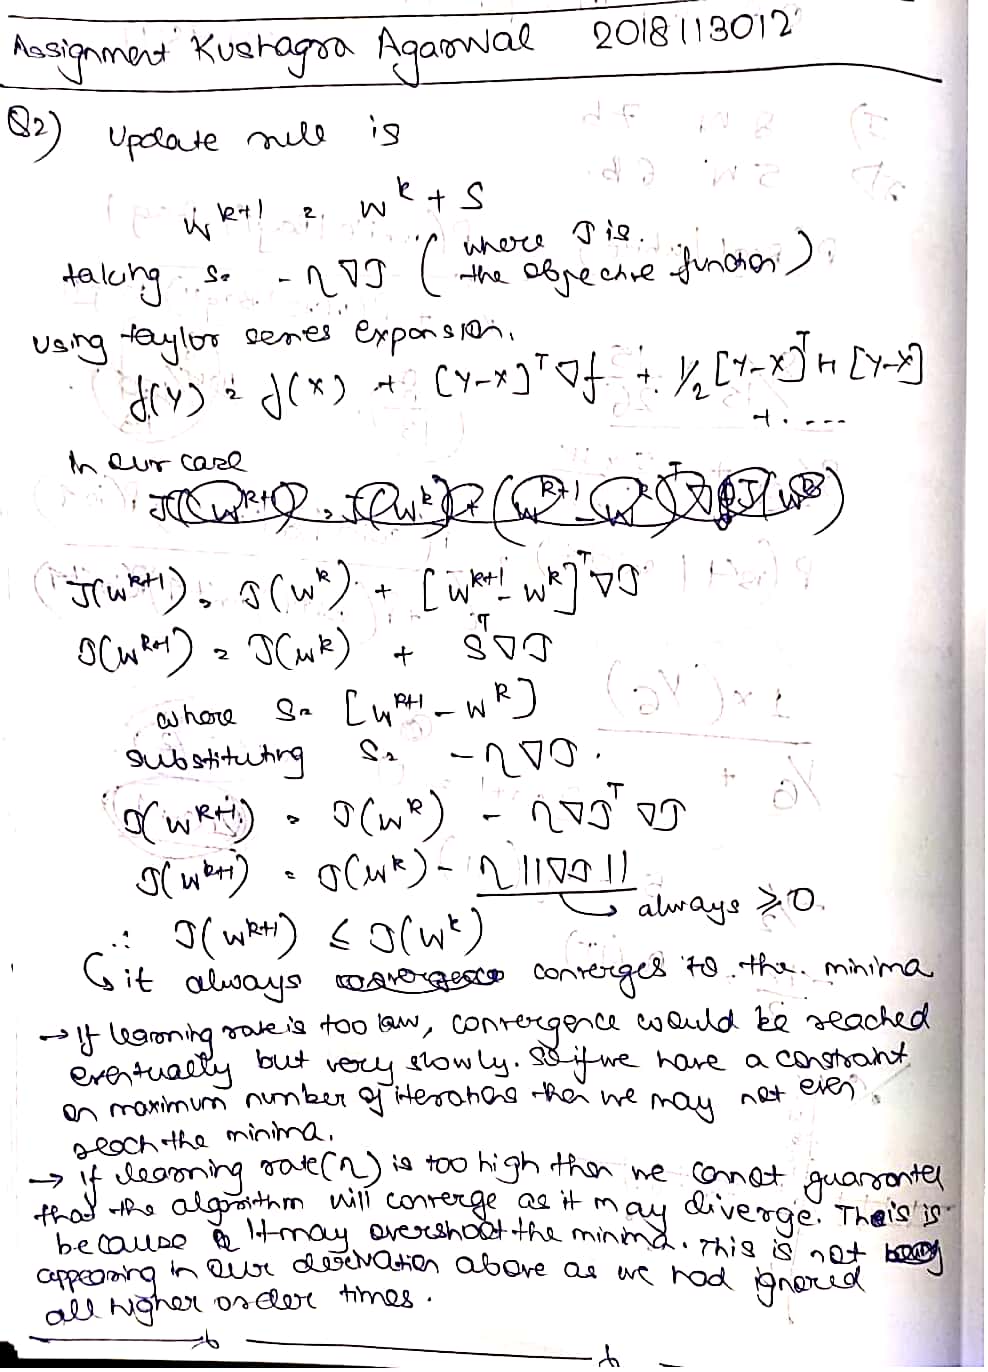 Assignment Kushagra Agarwal 2018113012
Q2) Update rule is
w^{k+1} = w^k + S
taking S = -η∇J (where J is the objective function)
using taylor series expansion.
f(y) = f(x) + [y-x]^T ∇f + 1/2 [y-x]^T H [y-x]
+ ....
In our case
J(w^{k+1}) = J(w^k) + [w^{k+1} - w^k]^T ∇J
J(w^{k+1}) = J(w^k) + S^T ∇J
where S = [w^{k+1} - w^k]
substituting S = -η∇J.
J(w^{k+1}) = J(w^k) - η∇J^T ∇J
J(w^{k+1}) = J(w^k) - η||∇J||
↳ always ≥ 0.
∴ J(w^{k+1}) ≤ J(w^k)
↳ it always converges to the minima
→ If learning rate is too low, convergence would be reached
eventually but very slowly. So if we have a constraint
on maximum number of iterations then we may not even
reach the minima.
→ if learning rate (η) is too high then we cannot guarantee
that the algorithm will converge as it may diverge. This is
because it may overshoot the minima. This is not
appearing in our derivation above as we had ignored
all higher order times.